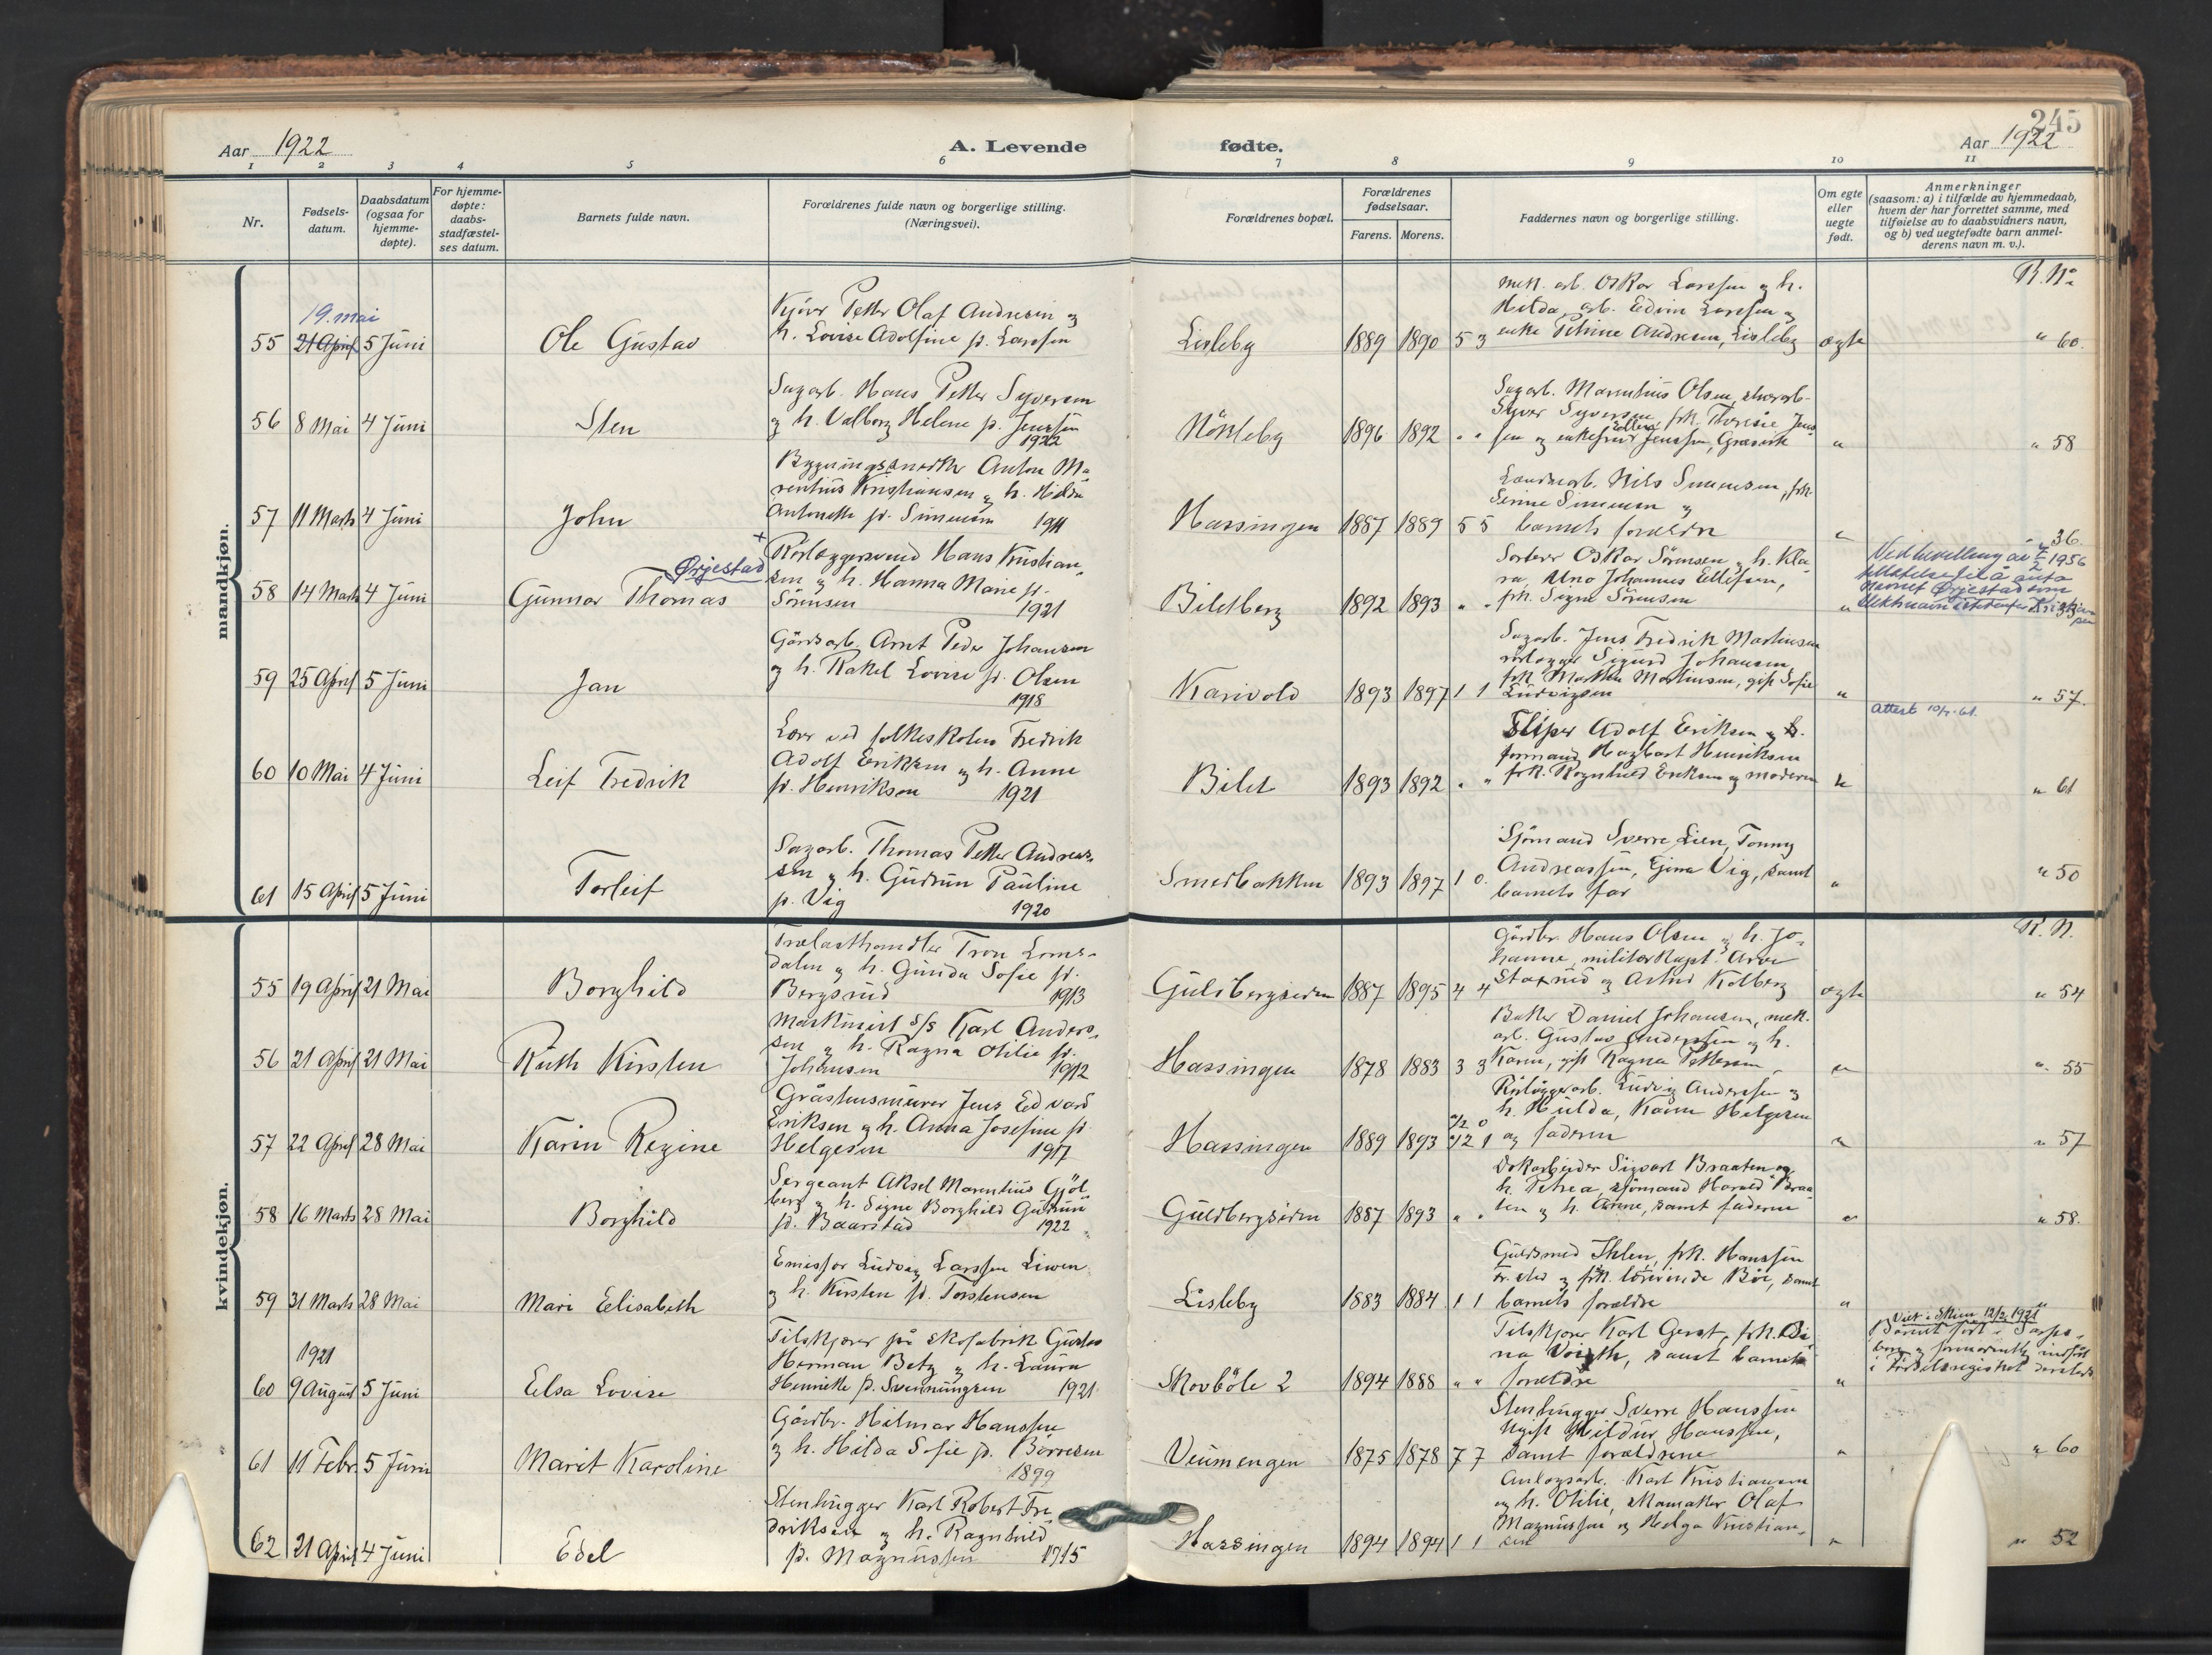 245
Aar 1922
A. Levende
fødte.
Aar 1922
1 2 3 4 5 6 7 8 9 10 11
Nr.
Fødsels-
datum.
Daabsdatum
(ogsaa for
hjemme-
døpte).
For hjemme-
døpte:
daabs-
stadfæstel-
ses datum.
Barnets fulde navn.
Forældrenes fulde navn og borgerlige stilling.
(Næringsvei).
Forældrenes bopæl.
Forældrenes
fødselsaar.
Farens. Morens.
Faddernes navn og borgerlige stilling.
Om egte
eller
uegte
født.
Anmerkninger
(saasom: a) i tilfælde av hjemmedaab,
hvem der har forrettet samme, med
tilføielse av to daabsvidners navn,
og b) ved uegtefødte barn anmel-
derens navn m. v.).
mandkjøn.
R. Nr.
19. mai
55 21 April 5 Juni
Ole Gustav
Kjörer Petter Olaf Andresen og
h. Lovise Adolfine f. Larssen
Lisleby
1889 1890 5 3
mek. arb. Oskar Larssen og h.
Hilda, arb. Edvin Larssen og
enke Petrine Andresen, Lisleby
ægte
" 60.
56 8 Mai 4 Juni
Sten
Sagarb. Hans Petter Syversen
og h. Valborg Helene f. Jenssen
1922
Nökleby
1896 1892 " "
Sagarb. Marentius Olsen, skoarb.
Syver Syversen, frk. Theresie Jens
sen og enkefru Jenssen, Græsvik
"
" 58
57 11 Marts 4 Juni
John
Bygningssnedker Anton Ma
rentius Kristiansen og h. Hilda
Antonette f. Simensen 1911
Hassingen
1887 1889 5 5
Nils Simensen, frk.
Simensen og
barnets forældre
"
" 36.
58 14 Marts 4 Juni
Ørjestad
Gunnar Thomas
Rörlæggersvend Hans Kristian
sen og h. Hanna Marie f.
Sörensen 1921
Biletberg
1892 1893 " "
Sorterer Oskar Sörensen og h. Kla
ra, Uno Johannes Ellefsen,
frk. Signe Sörensen
"
Ved bevilling av 1956
tillatelse til å anta
navnet Ørjestad som
slektsnavn istedenfor Kristian
sen
59 25 April 5 Juni
Jan
Gårdsarb. Arnt Peder Johansen
og h. Rakel Lovise f. Olsen
1918
Karivold
1893 1897 1 1
Sagarb. Jens Fredrik Martinsen
rörlægger Sigurd Johansen,
frk. Marthe Martinsen, gift Sofie
Ludvigsen
"
" 57.
Attest 10/7-61.
60 10 Mai 4 Juni
Leif Fredrik
Lærer ved folkeskolen Fredrik
Adolf Eriksen og h. Anne
f. Henriksen 1921
Bilet
1893 1892 " "
Sliper Adolf Eriksen og h.
formand Hagbart Henriksen
frk. Ragnhild Eriksen og moderen
"
" 61
61 15 April 5 Juni
Torleif
Sagarb. Thomas Petter Andreas-
sen og h. Gudrun Pauline
f. Vig 1920
Smedbakken
1893 1897 1 0.
Sjömand Sverre Lien, Tommy
Andreassen, Gina Vig, samt
barnets far
"
" 50
kvindekjøn.
R. N.
55 19 April 21 Mai
Borghild
Trælasthandler Tron Loms-
dalen og h. Gunda Sofie f.
Bergsrud 1913
Guldbergsiden
1887 1895 4 4
Gårdbr. Hans Olsen og h. Jo-
hanne, militærkapt. Arne
Staxrud og Astrid Kolberg
ægte
" 54
56 21 April 21 Mai
Ruth Kirsten
Maskinist s/s Karl Anders-
sen og h. Ragna Otilie f.
Johansen 1912
Hassingen
1878 1883 3 3
Baker Daniel Johansen, mek.
arb. Gustav Anderssen og h.
Karen, gift Ragna Pettersen
"
" 55
57 22 April 28 Mai
Karin Regine
Gråstensmurer Jens Edvard
Eriksen og h. Anna Josefine f.
Helgesen 1917
Hassingen
1889 1893
Rörlæggerarb. Ludvig Anderssen og
h. Hulda, Karen Helgesen
og faderen
"
" 57
58 16 Marts 28 Mai
Borghild
Sergeant Aksel Marentius Gjöl
berg og h. Signe Borghild Gudrun
f. Baarstad 1922
Guldbergsiden
1887 1893 " "
Dokarbeider Sigvart Braaten og
h. Petrea, sjömand Harald Braa
ten og h. Anne, samt faderen
"
" 58.
59 31 Marts 28 Mai
Mari Elisabeth
Emissær Ludvig Larssen Liwen
og h. Kirsten f. Torstensen
Lisleby
1883 1884 1 1
Guldsmed Ihlen, frk. Hanssen
og frk. lærerinde Böe, samt
barnets forældre
"
"
1921
60 9 August 5 Juni
Elsa Lovise
Tilskjærer på skofabrik Gustav
Herman Betz og h. Laura
Henriette f. Svenningsen 1921.
Skovböle 2
1894 1888 " "
Tilskjærer Karl Gerst, frk. Bi
na Voigth, samt barnets
forældre
"
Viet i Skien 12/2 1921
Barnet født i Sarps-
borg og formodentlig indført
i fødselsregistret dersteds
61 11 Febr. 5 Juni
Marit Karoline
Gårdbr. Hilmar Hanssen
og h. Hilda Sofie f. Börresen
1899
Veumengen
1875 1878 7 7
Stenhugger Sverre Hanssen
ugift Hildur Hanssen,
samt forældrene
"
" 60
62 21 April 4 Juni
Edel
Stenhugger Karl Robert Fre
driksen og h. Ragnhild
f. Magnussen 1915
Hassingen
1894 1894 1 1
Anlægsarb. Karl Kristiansen
og h. Otilie, skomaker Olaf
Magnussen og Helga Kristian-
sen
"
" 52